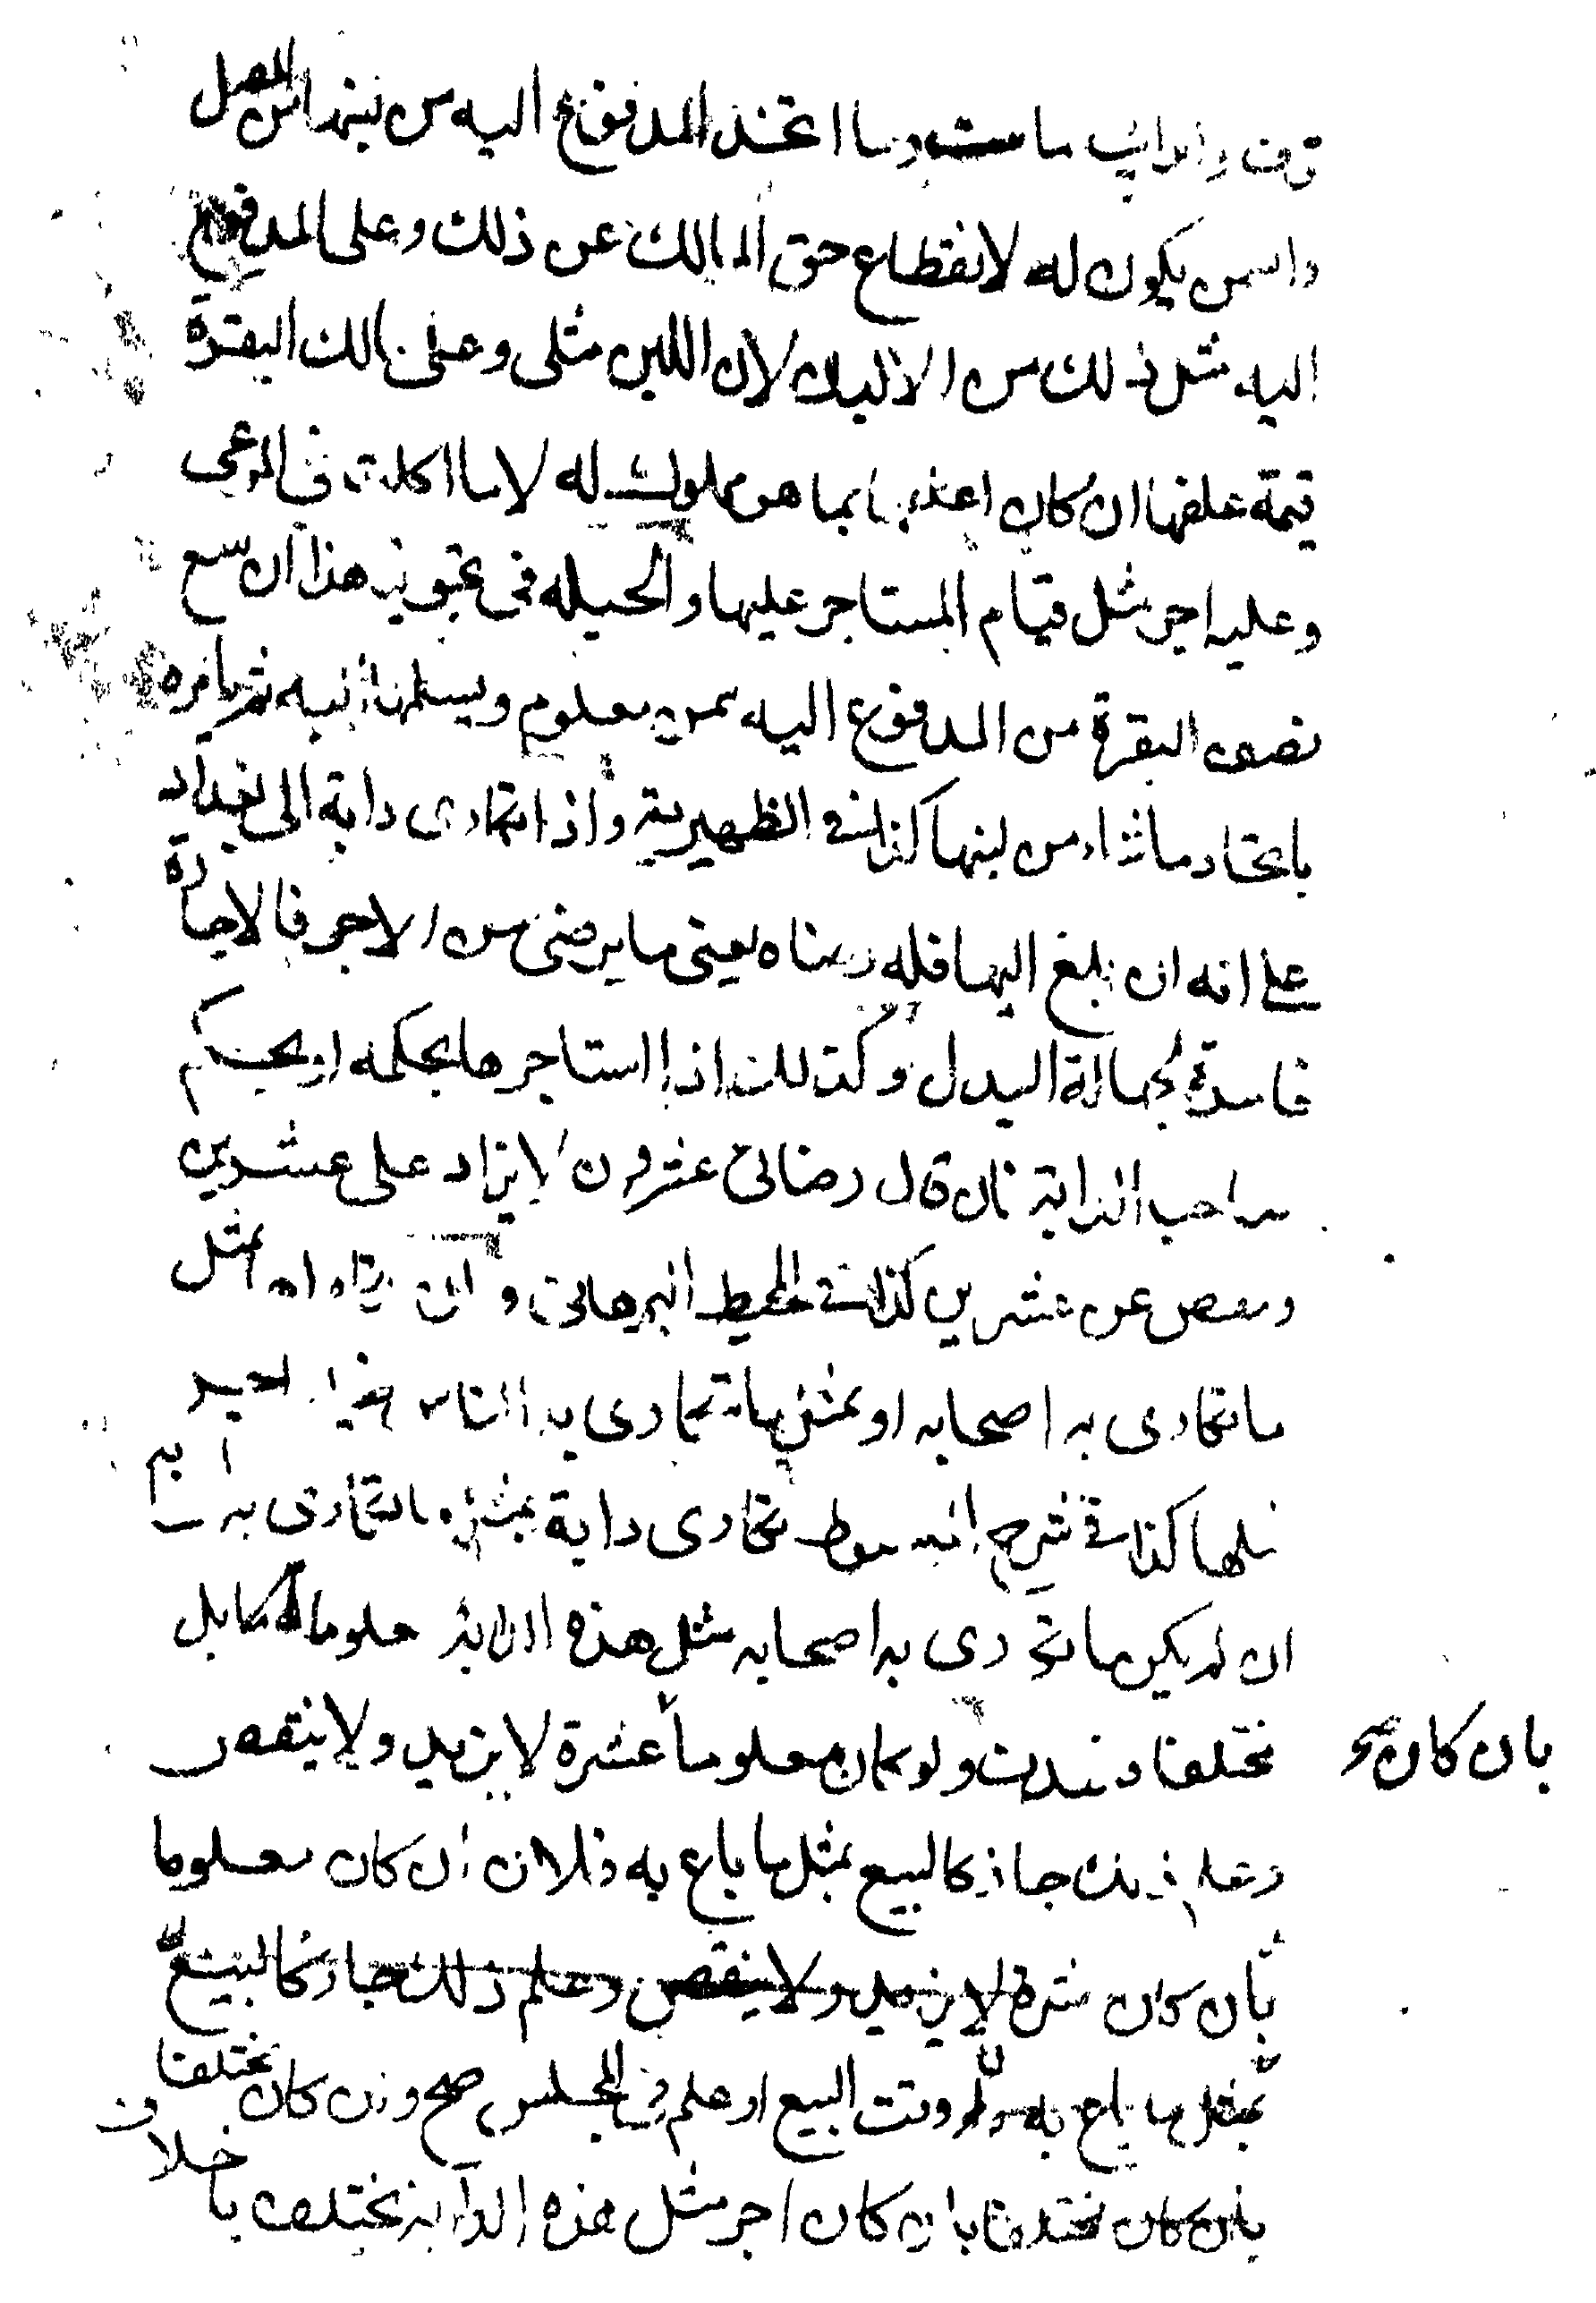 وما اتخذ المدفوع اليه من لبنها المصل
والسمن يكون له لانقطاع حق المالك عن ذلك وعلى المدفوع
اليه مثل ذلك من الالبان لان اللبن مثلى وعلى مالك البقرة
قيمة علفها ان كان اعلفها بما هو مملوك له لا ما اكلت فى المرعى
وعليه اجر مثل قيام المستاجر عليها والحيله فى تجويز هذا ان يبيع
نصف البقرة من المدفوع اليه بثمن معلوم ويسلمها اليه ثم يامره
باتخاذ ما شاء من لبنها كذا فى الظهيرية واذا تكارى دابة الى بغداد
على انه ان بلغ اليها فله رضاه يعنى ما يرضى من الاجر فالاجارة
فاسدة لجهالة البدل وكذلك اذا استاجرها بحكمه او بحكم
صاحب الدابة فان قال رضائى عشرون لا يزاد على عشرين
وينقص عن عشرين كذا فى المحيط البرهانى وان تكارى بمثل
ما تكارى به اصحابه او بمثل ما تكارى به الناس
مثلها كذا فى شرح المبسوط تكارى دابة بمثل ما تكارى به اصحابه
ان لم يكن ما تكارى به اصحابه مثل هذه الدابة معلوما له بل
مختلفا فسدت ولو كان معلوما عشرة لا يزيد ولا ينقص
بان كان صح
وعلم ذلك جاز كالبيع بمثل ما باع به فلان ان كان معلوما
بان كان عشرة لا يزيد ولا ينقص وعلم ذلك جاز كالبيع
بمثل ما باع به وقت البيع او علم فى المجلس صح وان كان مختلفا
بان كان مختلفا بان كان اجر مثل هذه الدابة يختلف باختلاف